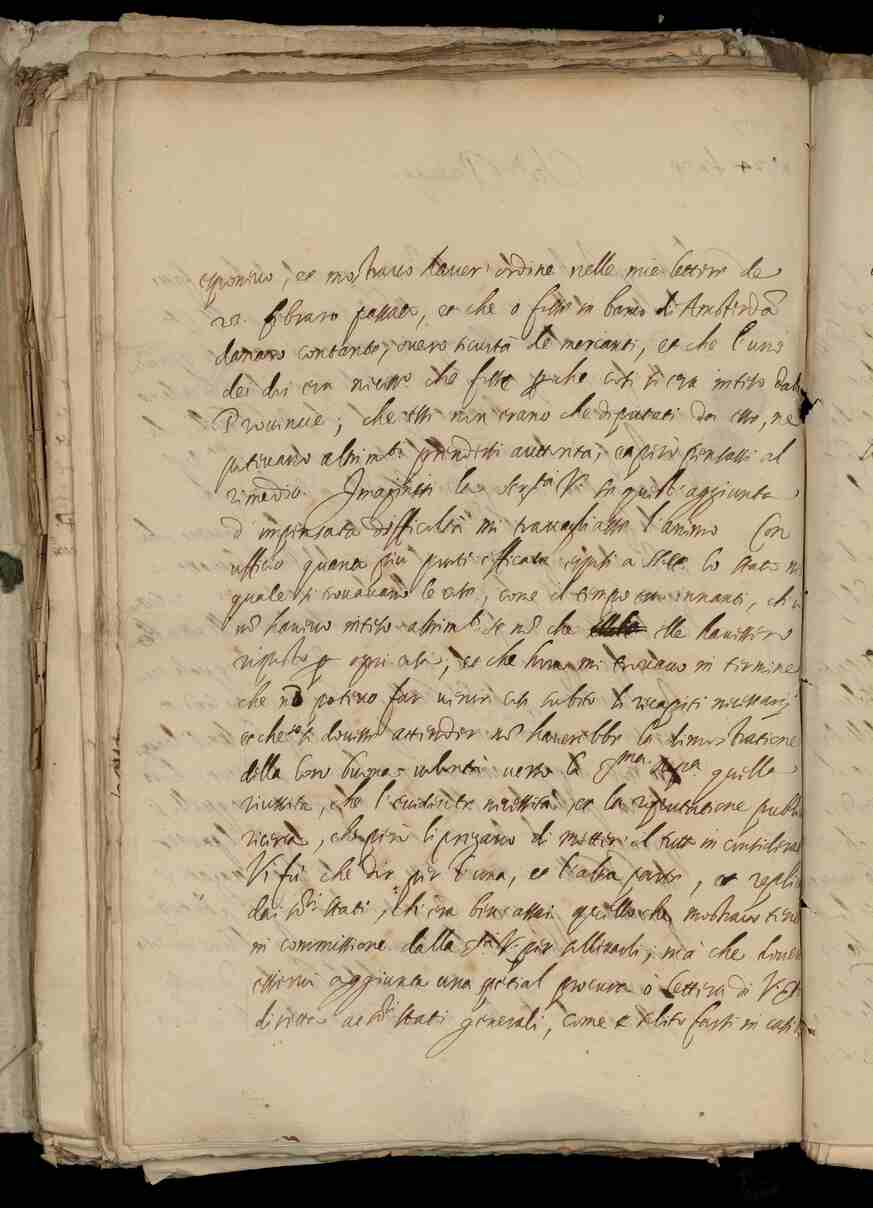 esponevo, et mostravo haver ordine nelle mie lettere de
febraro passato, et che o fosse in banco di Amsterdã
danaro contante, overo sicurtà de mercanti, et che l'uno
dei doi era necess.º che fosse perche così si era inteso dalle
Provincie; che essi non erano che deputati da esse, ne
potevano altrim.te prendersi auttorità; et però pensassi al
rimedio. Imagini la Ser.tà V. se questa aggiunta
d'impensata difficoltà mi travagliasse l'animo Con
ufficio quanto più potei efficace esposi a lo stato nel
quale si trovavano le cose, come il tempo era innanti, ch'io
nõ havevo inteso altrim.te se nõ che elle havessero
risposto ogni cosa, et che hora mi trovavo in termine
che nõ potevo far venir così subito li recapiti necessarij
et che se si dovesse attender nõ haverebbe la dimostratione
della loro buona volontà verso la Ser.ma Rep.ca quella
riuscita, che l'evidente necessità, et la reputatione publica
ricerca, che però li pregavo di metter il tutto in consideratione
Vi fù che dir per l'una, et l'altra parte, et replicato
dai s.ri Stati, ch'era bene assai quello che mostravo tener
in commissione dalla Ser.tà V. per sollevarli, mà che dovea
esservi aggiunta una special procura ò lettera di V. Ser.tà
diretta ai s.ri Stati generali, come è solito farsi in casi